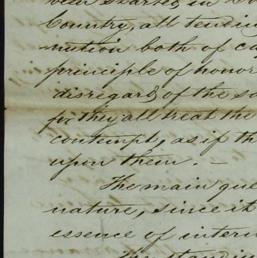 been started in
Country, all tending
nution both of
principle of honor
disregard, of the
they all treat the
contempt, as if th
upon them. —
The main que
nature, since it
essence of inter